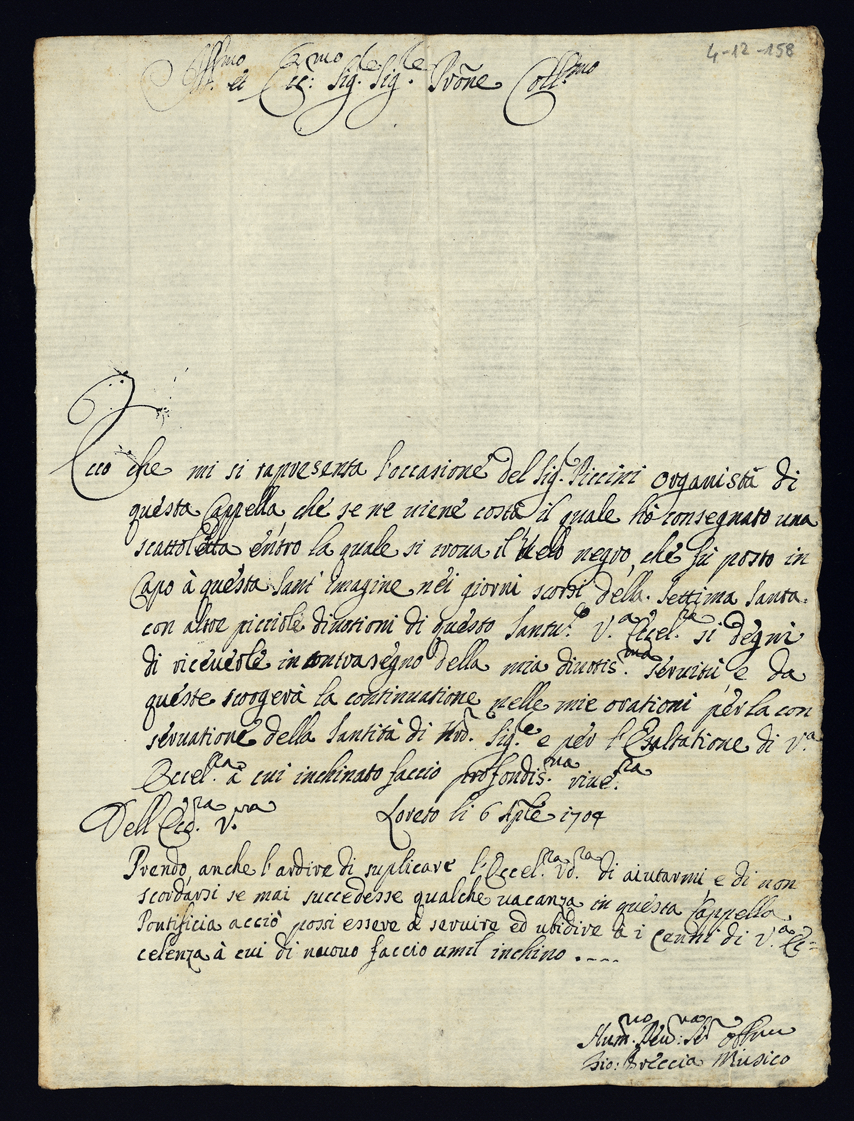 4-12-158
Ill.mo et Ecc.mo Sig.re Sig.re Prōne Coll.mo
Ecco che mi si rapresenta l'occasione del Sig.r Piccini organista di
questa Cappella che se ne viene costà il quale hò consegnato una
scattoletta entro la quale si trova il Velo negro, che fù posto in
Capo à questa Sant'Imagine nei giorni scorsi della Settima Santa
con altre picciole divotioni di questo Santu.o V.a Eccel.za si degni
di riceverle in contrasegno della mia divotis.ma servitù e da
queste scorgerà la continuatione nelle mie orationi per la con
servatione della Santità di Nrō. Sig.re e per l'Esaltatione di V.a
Eccel.za à cui inchinato faccio profondis.ma rive.za
Dell'Ecc.za V.ra Loreto li 6 Aple 1704
Prendo anche l'ardire di suplicare l'Eccel.za Vd.ra di aiutarmi e di non
scordarsi se mai succedesse qualche vacanza in questa Cappella
Pontificia acciò possi essere à servire ed ubidire à i Cenni di V.a Ec=
celenza à cui di nuovo faccio umil inchino . ----
Hum.mo Dev.mo Se.r
Gio: Breccia Musico